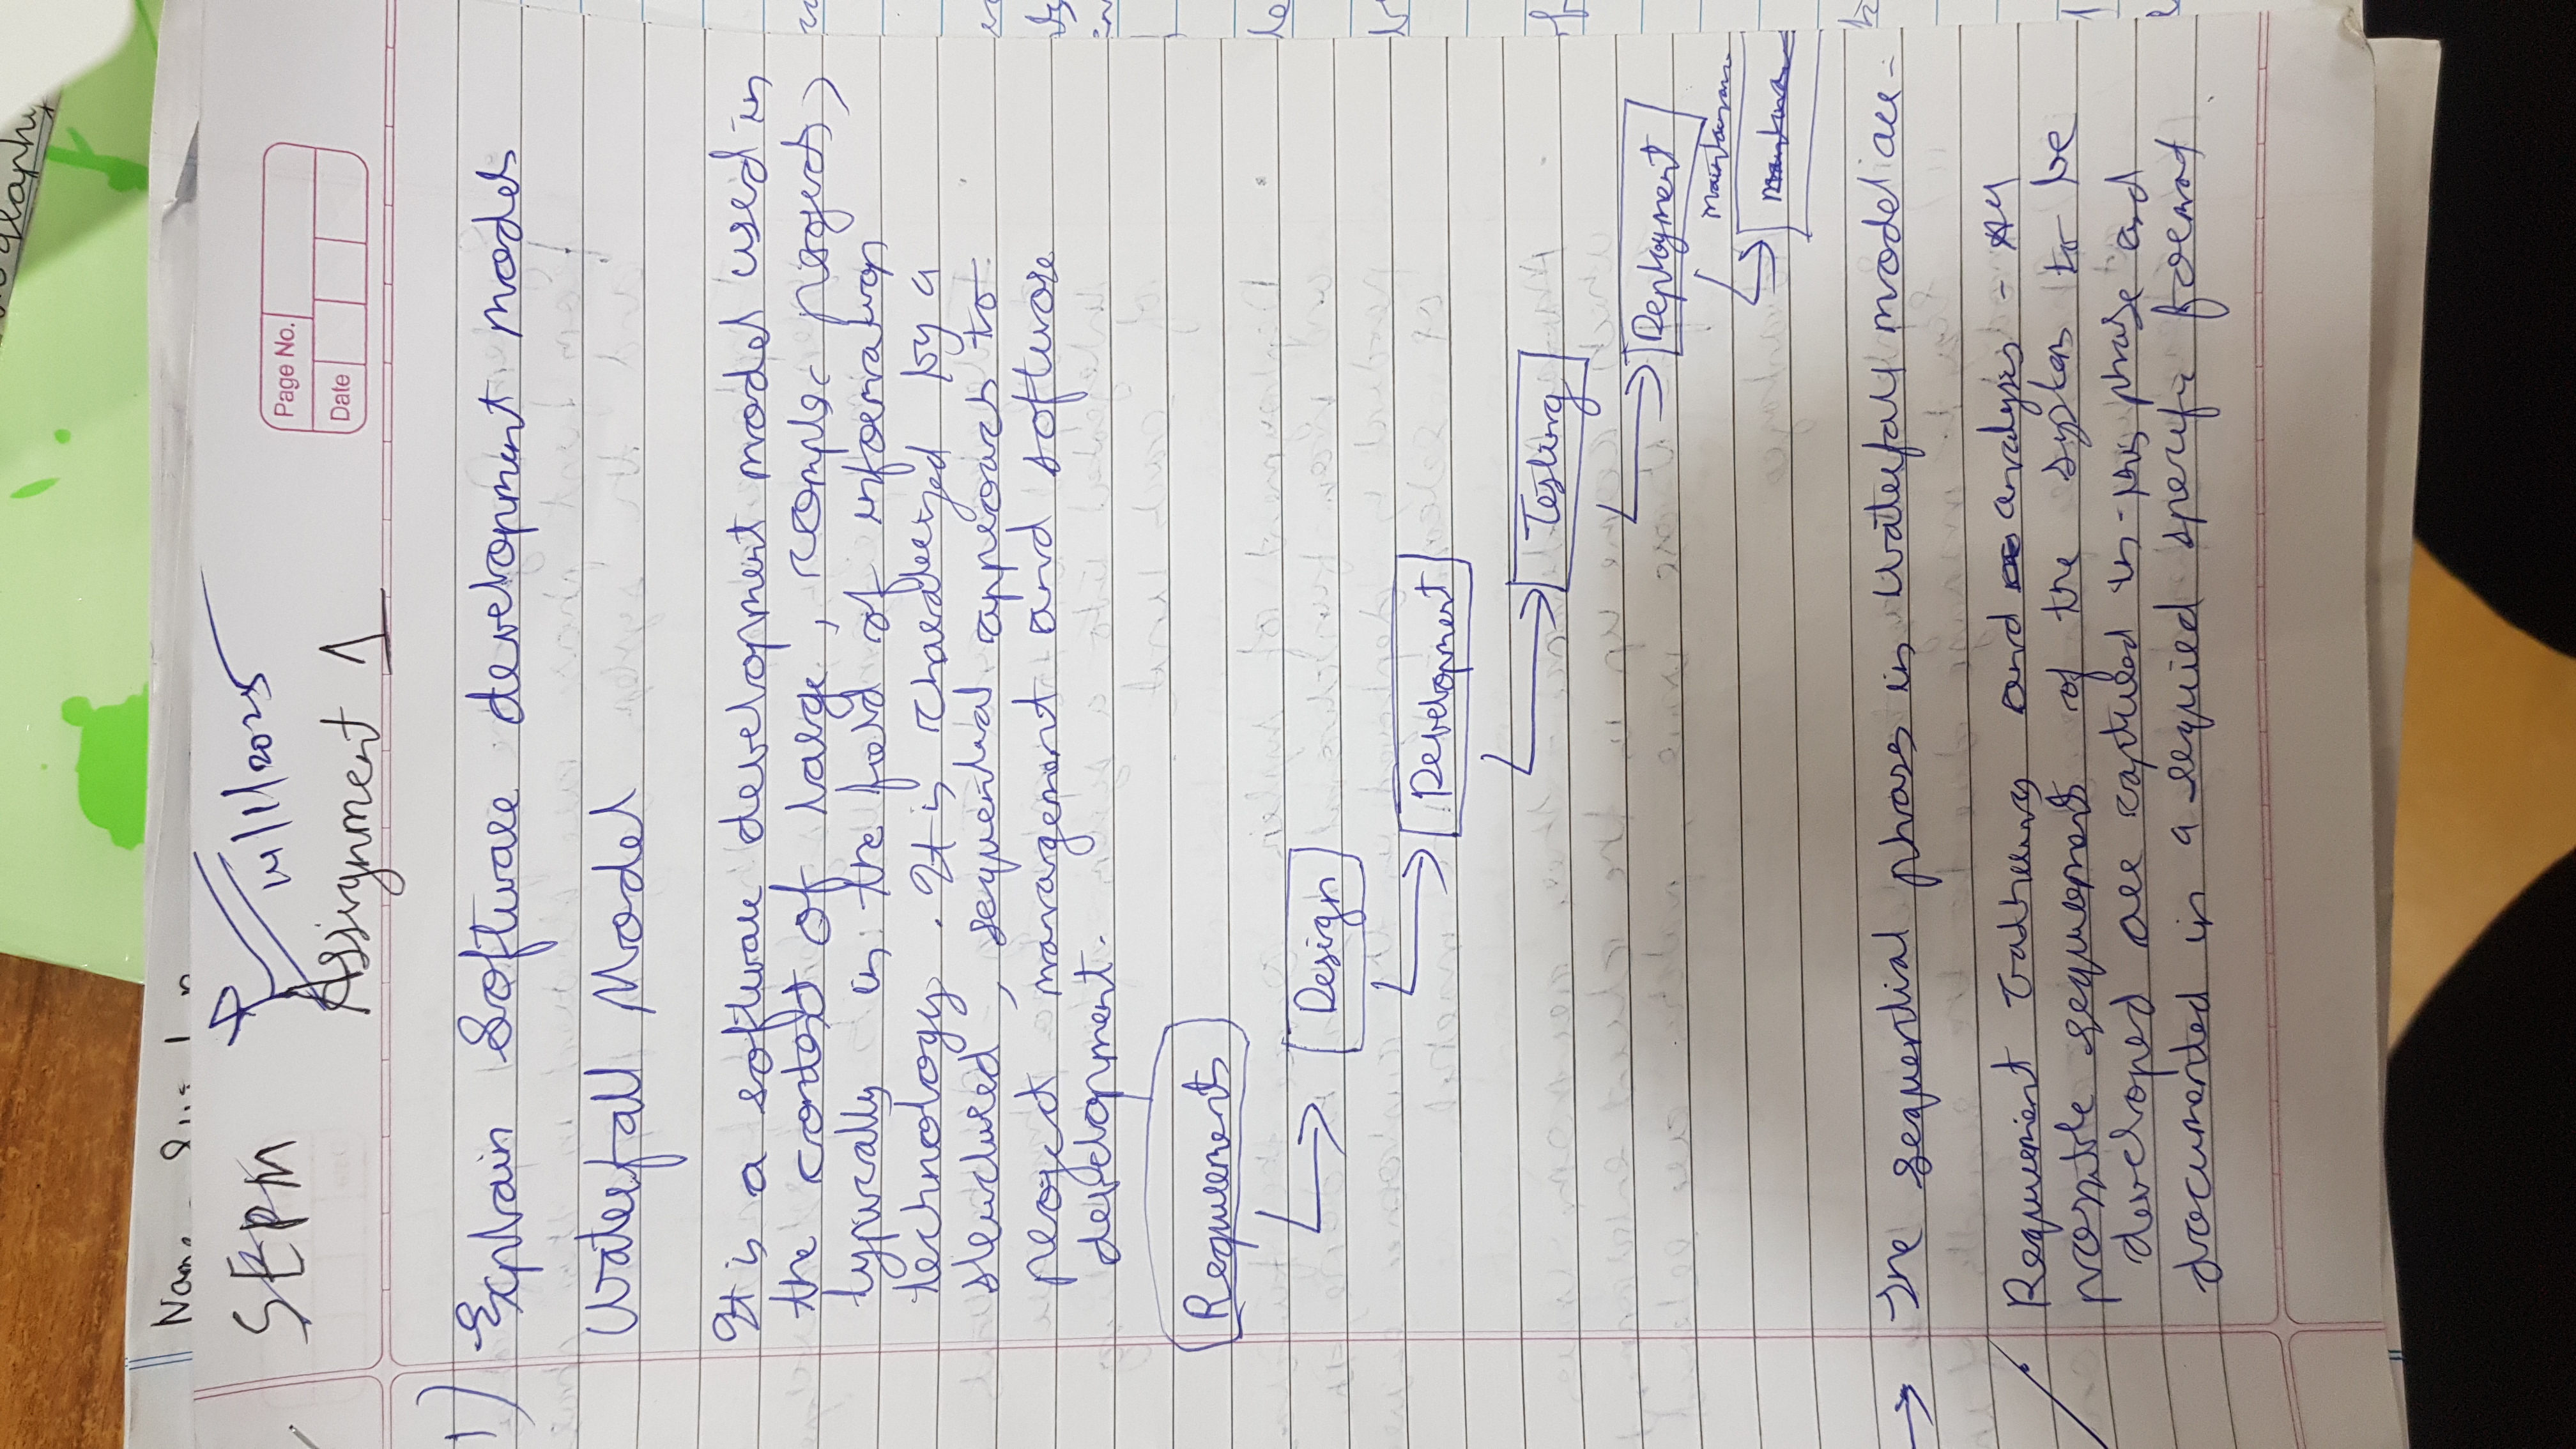 Name
SEPM
14/1/2025
Assignment 1
Page No.
Date
1) Explain Software development models
Waterfall Model
It is a software development model used in
the context of large, complex projects,
typically in the field of information
technology. It is characterized by a
structured, sequential approach to
project management and software
development.
Requirements
Design
Development
Testing
Deployment
Maintenance
→ The sequential phases in Waterfall model are -
Requirement Gathering and analysis - All
possible requirements of the system to be
developed are captured in this phase and
documented in a required specific format